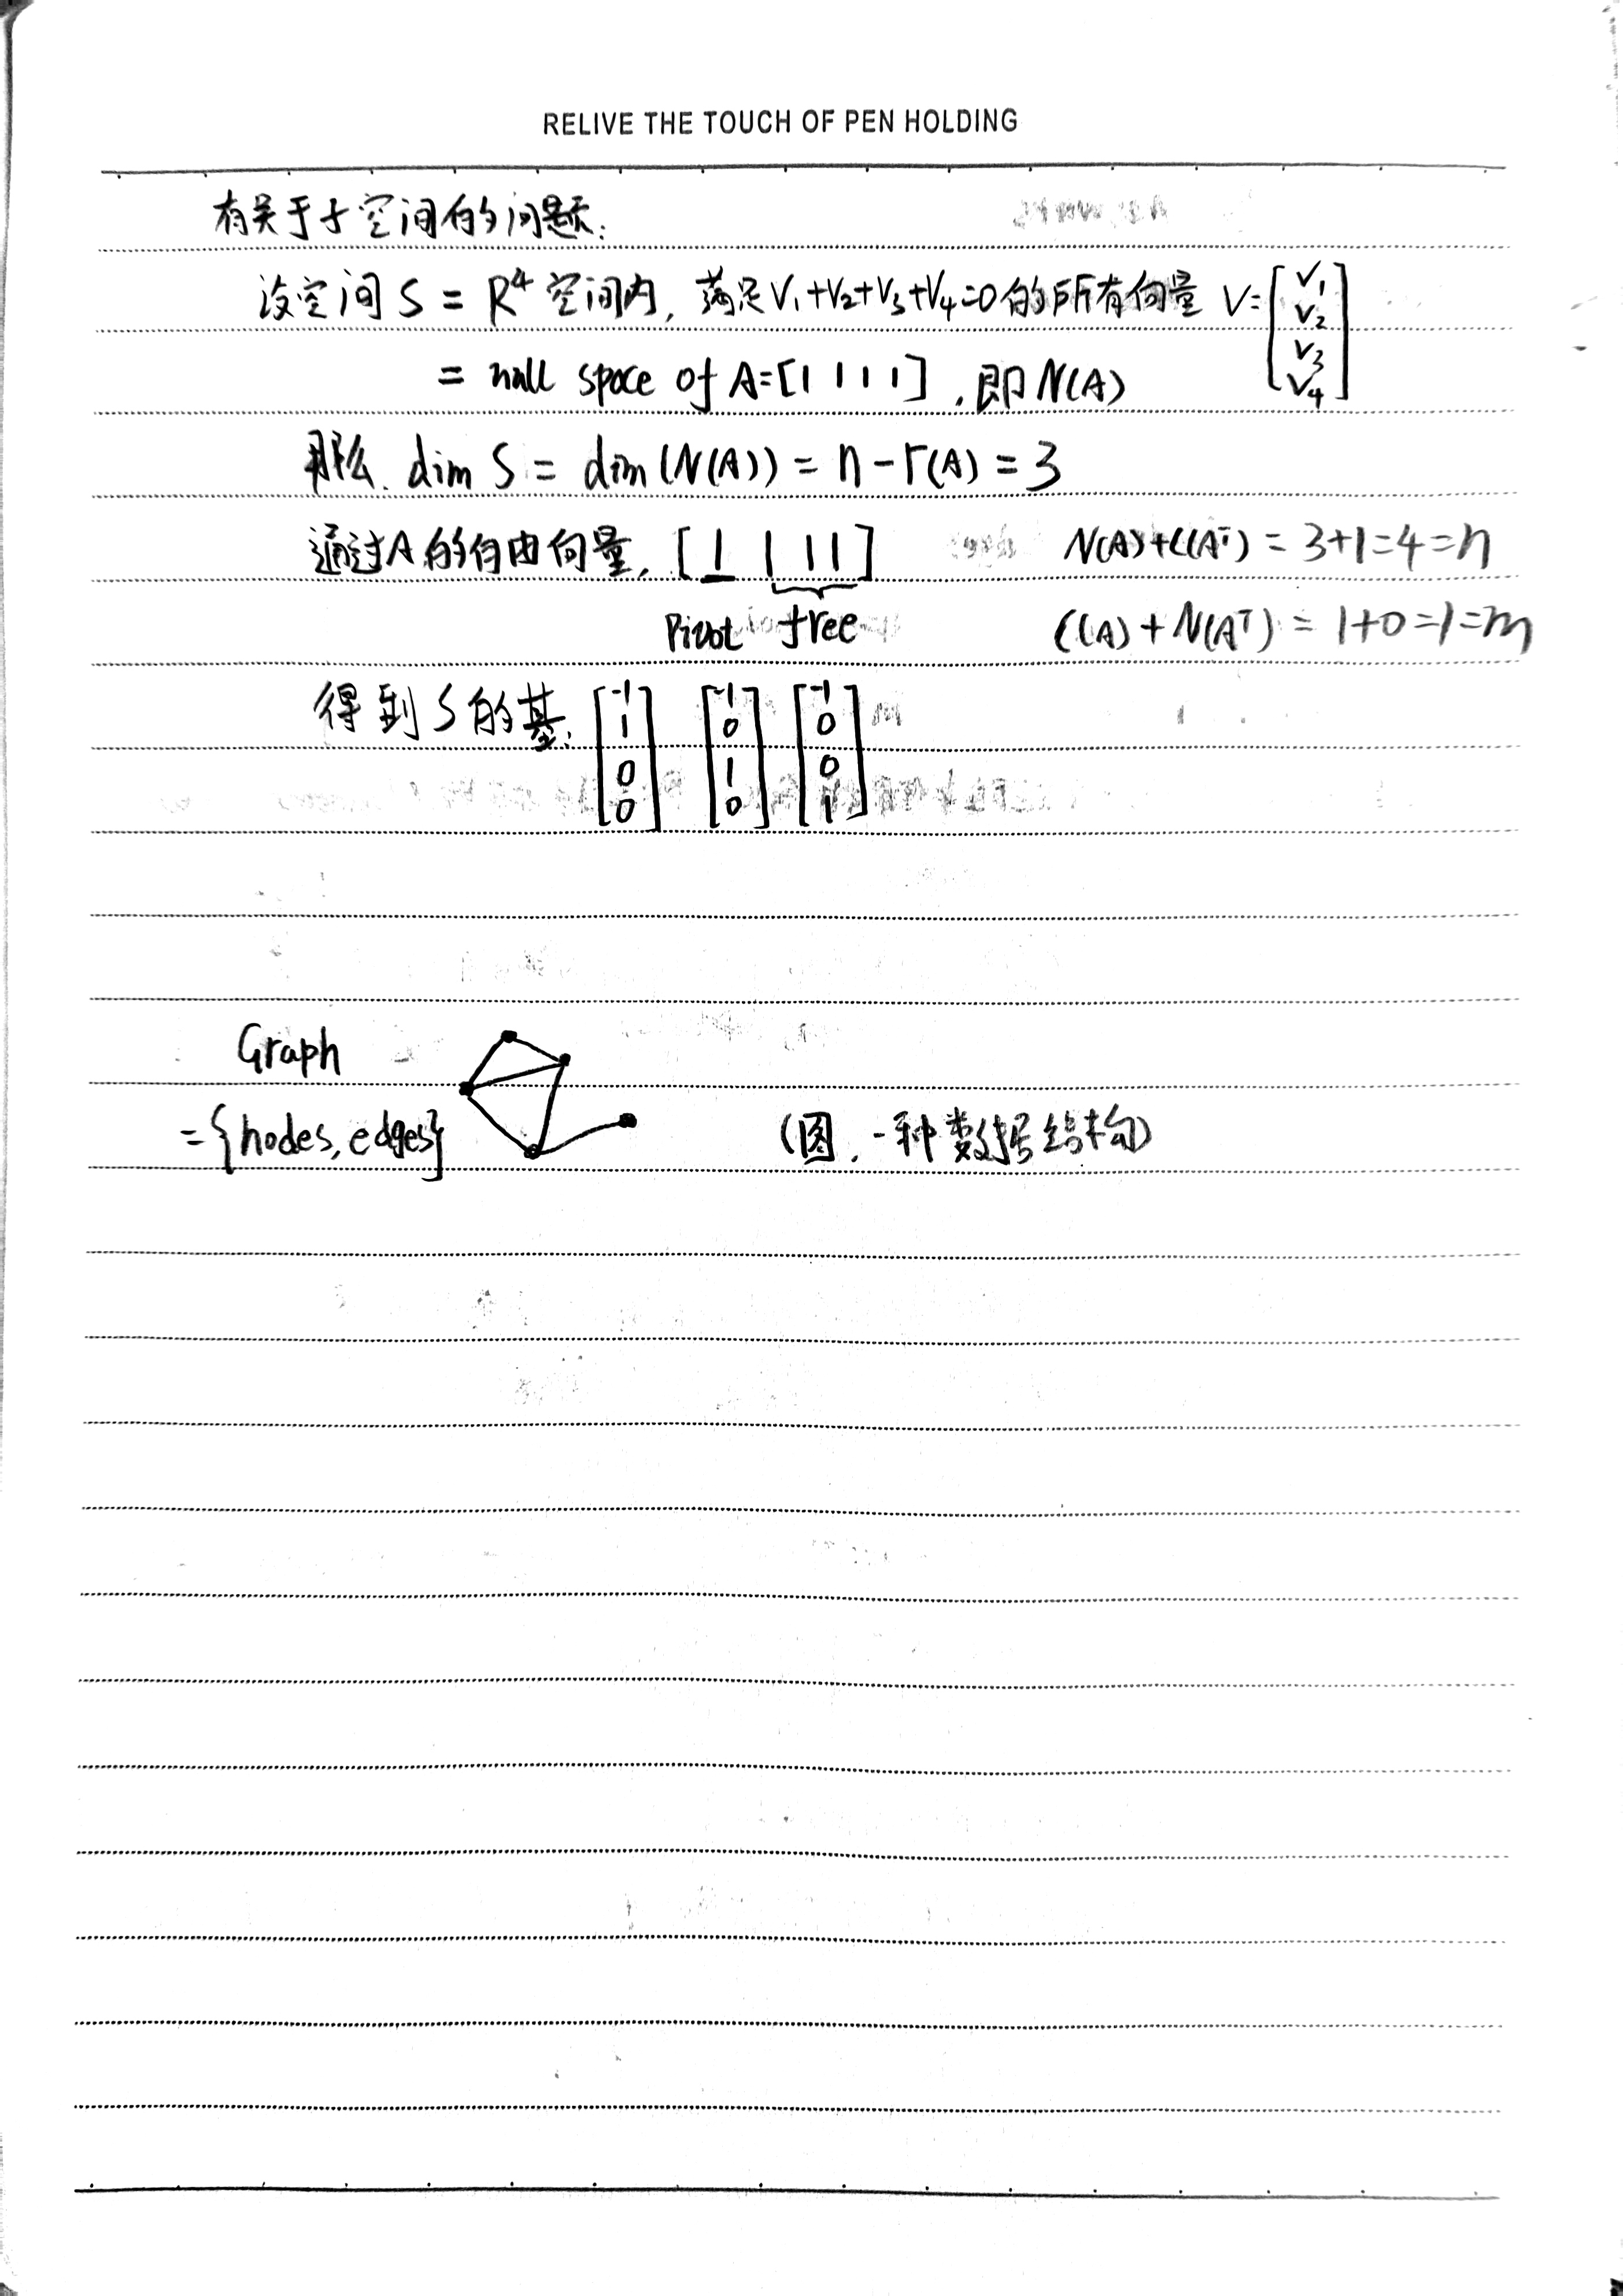 RELIVE THE TOUCH OF PEN HOLDING
有关于子空间的问题:
设空间 S = R⁴ 空间内, 满足 V₁+V₂+V₃+V₄=0 的所有向量 V=[V₁ V₂ V₃ V₄]
= null space of A=[1 1 1 1] , 即 N(A)
那么. dim S = dim (N(A)) = n - r(A) = 3
通过A的自由向量, [1 1 1 1] N(A)+C(Aᵀ) = 3+1=4=n
Pivot free C(A)+N(Aᵀ) = 1+0=1=m
得到S的基: [-1 1 0 0] [-1 0 1 0] [-1 0 0 1]
Graph
={nodes, edges} (图, 一种数据结构)